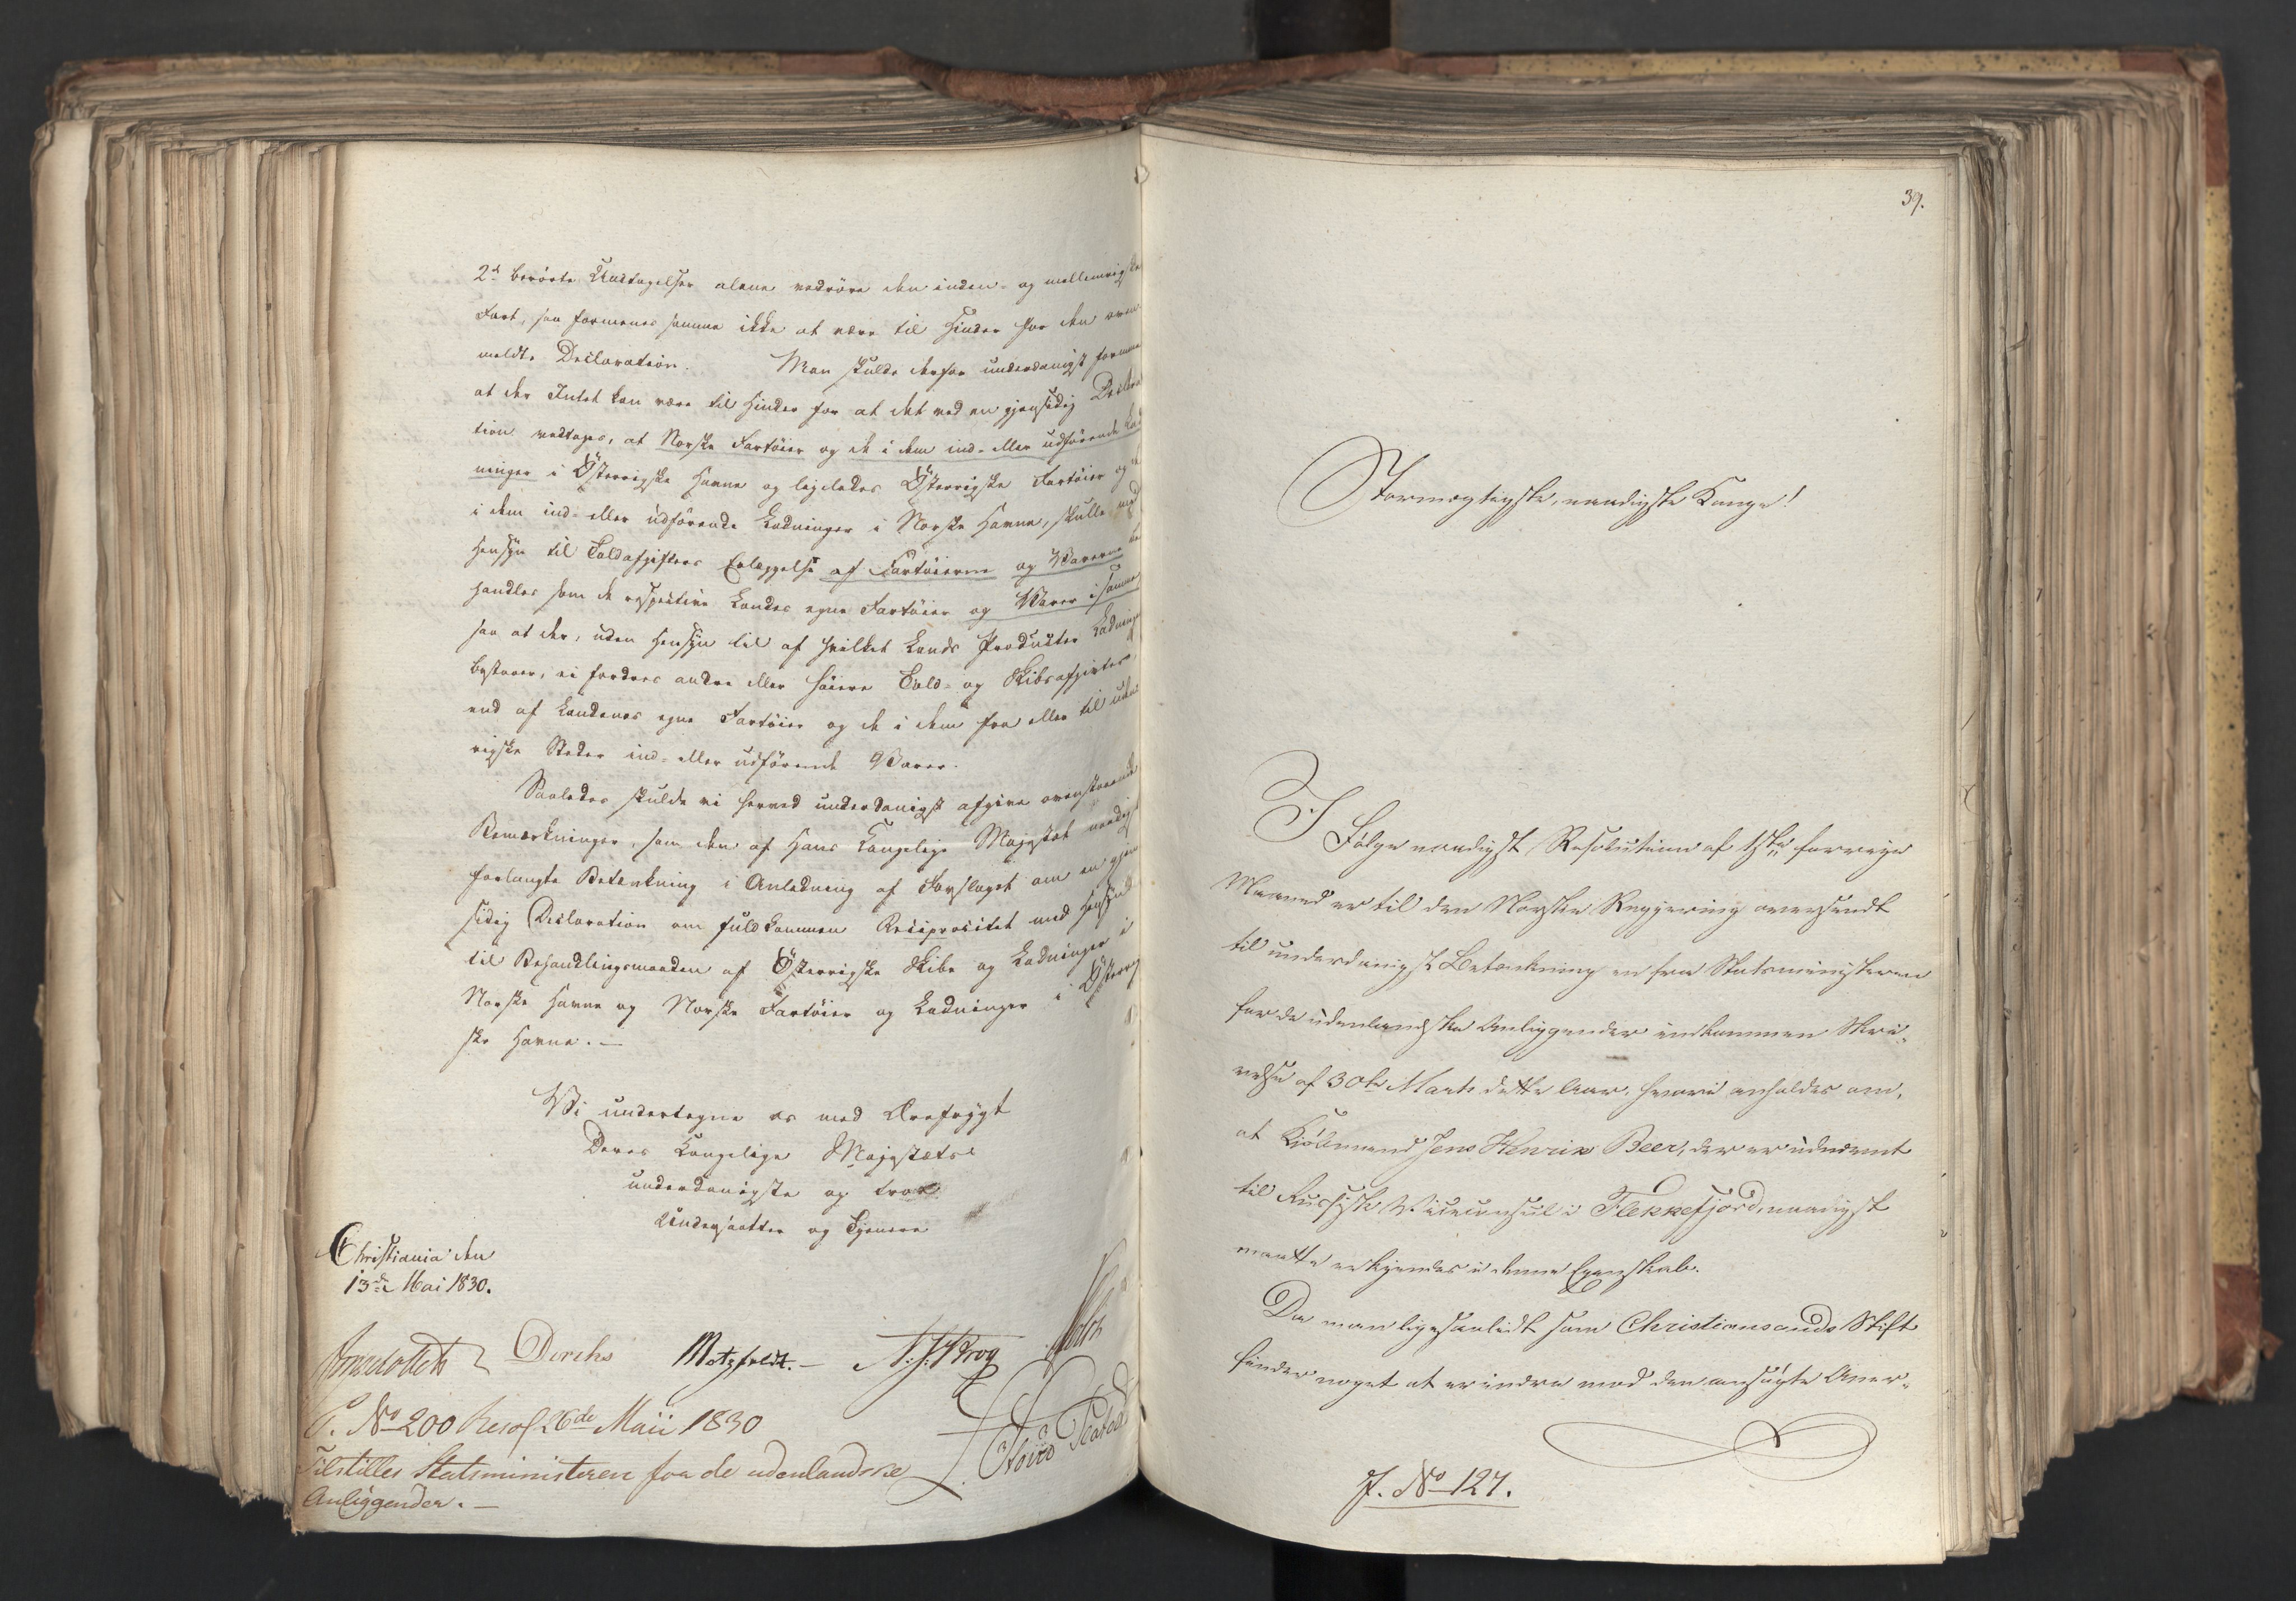 2d berörte Undtagelser alene vedröre den inden- og mellemrigske
Fart, saa formenes samme ikke at være til Hinder for den oven
meldte Declaration. Man skulde derfor underdanigst formene
at der Intet kan være til Hinder for at det ved en gjensidig Declara
tion vedtages, at Norske Fartöier og de i dem ind- eller udförende Lad
ninger i Österrigske Havne og ligeledes Österrigske Fartöier og de
i dem ind- eller udförende Ladninger i Norske Havne, skulle med
Hensyn til Toldafgifters Erlæggelse af Fartöierne og Varerne be
handles som de respective Landes egne Fartöier og Varer i samme
saa at der, uden Hensyn til af hvilket Lands Produkter Ladningen
bestaaer, ei fordres andre eller höiere Told- og Skibsafgivter,
end af Landenes egne Fartöier og de i dem fra eller til uden
rigske Steder ind- eller udförende Varer.
Saaledes skulde vi herved underdanigst afgive ovenstaaende
Bemærkninger, som den af Hans Kongelige Majestæt naadigst
forlangte Betænkning i Anledning af Forslaget om en gjen
sidig Declaration om fuldkommen Reciprocitet med Hensyn
til Behandlingsmaaden af Österrigske Skibe og Ladninger i
Norske Havne og Norske Fartöier og Ladninger i Österrig
ske Havne. —
Vi undertegne os med Ærefrygt
Deres Kongelige Majestæts
underdanigste og troe
Undersaatter og Tjenere
Christiania den
13de Mai 1830.
Diriks Motzfeldt. — Holst
P. No 200 Resol. 26de Maii 1830
Tilstilles Statsministeren for de udenlandske
Anliggender. —
39.
Stormægtigste, naadigste Konge!
I Fölge naadigst Resolution af 1ste forrige
Maaned er til den Norske Regjering oversendt
til underdanigst Betænkning en fra Statsministeren
for de udenlandske Anliggender indkommen Skri-
velse af 30te Marts dette Aar, hvori anholdes om,
at Kjöbmand Jens Henrik Beer, der er udnævnt
til Russisk Viceconsul i Flekkefjord, naadigst
maatte erkjendes i denne Egenskab.
Da man ligesaalidt som Christiansands Stift
finder noget at erindre mod den ansögte Aner-
J. No 127.